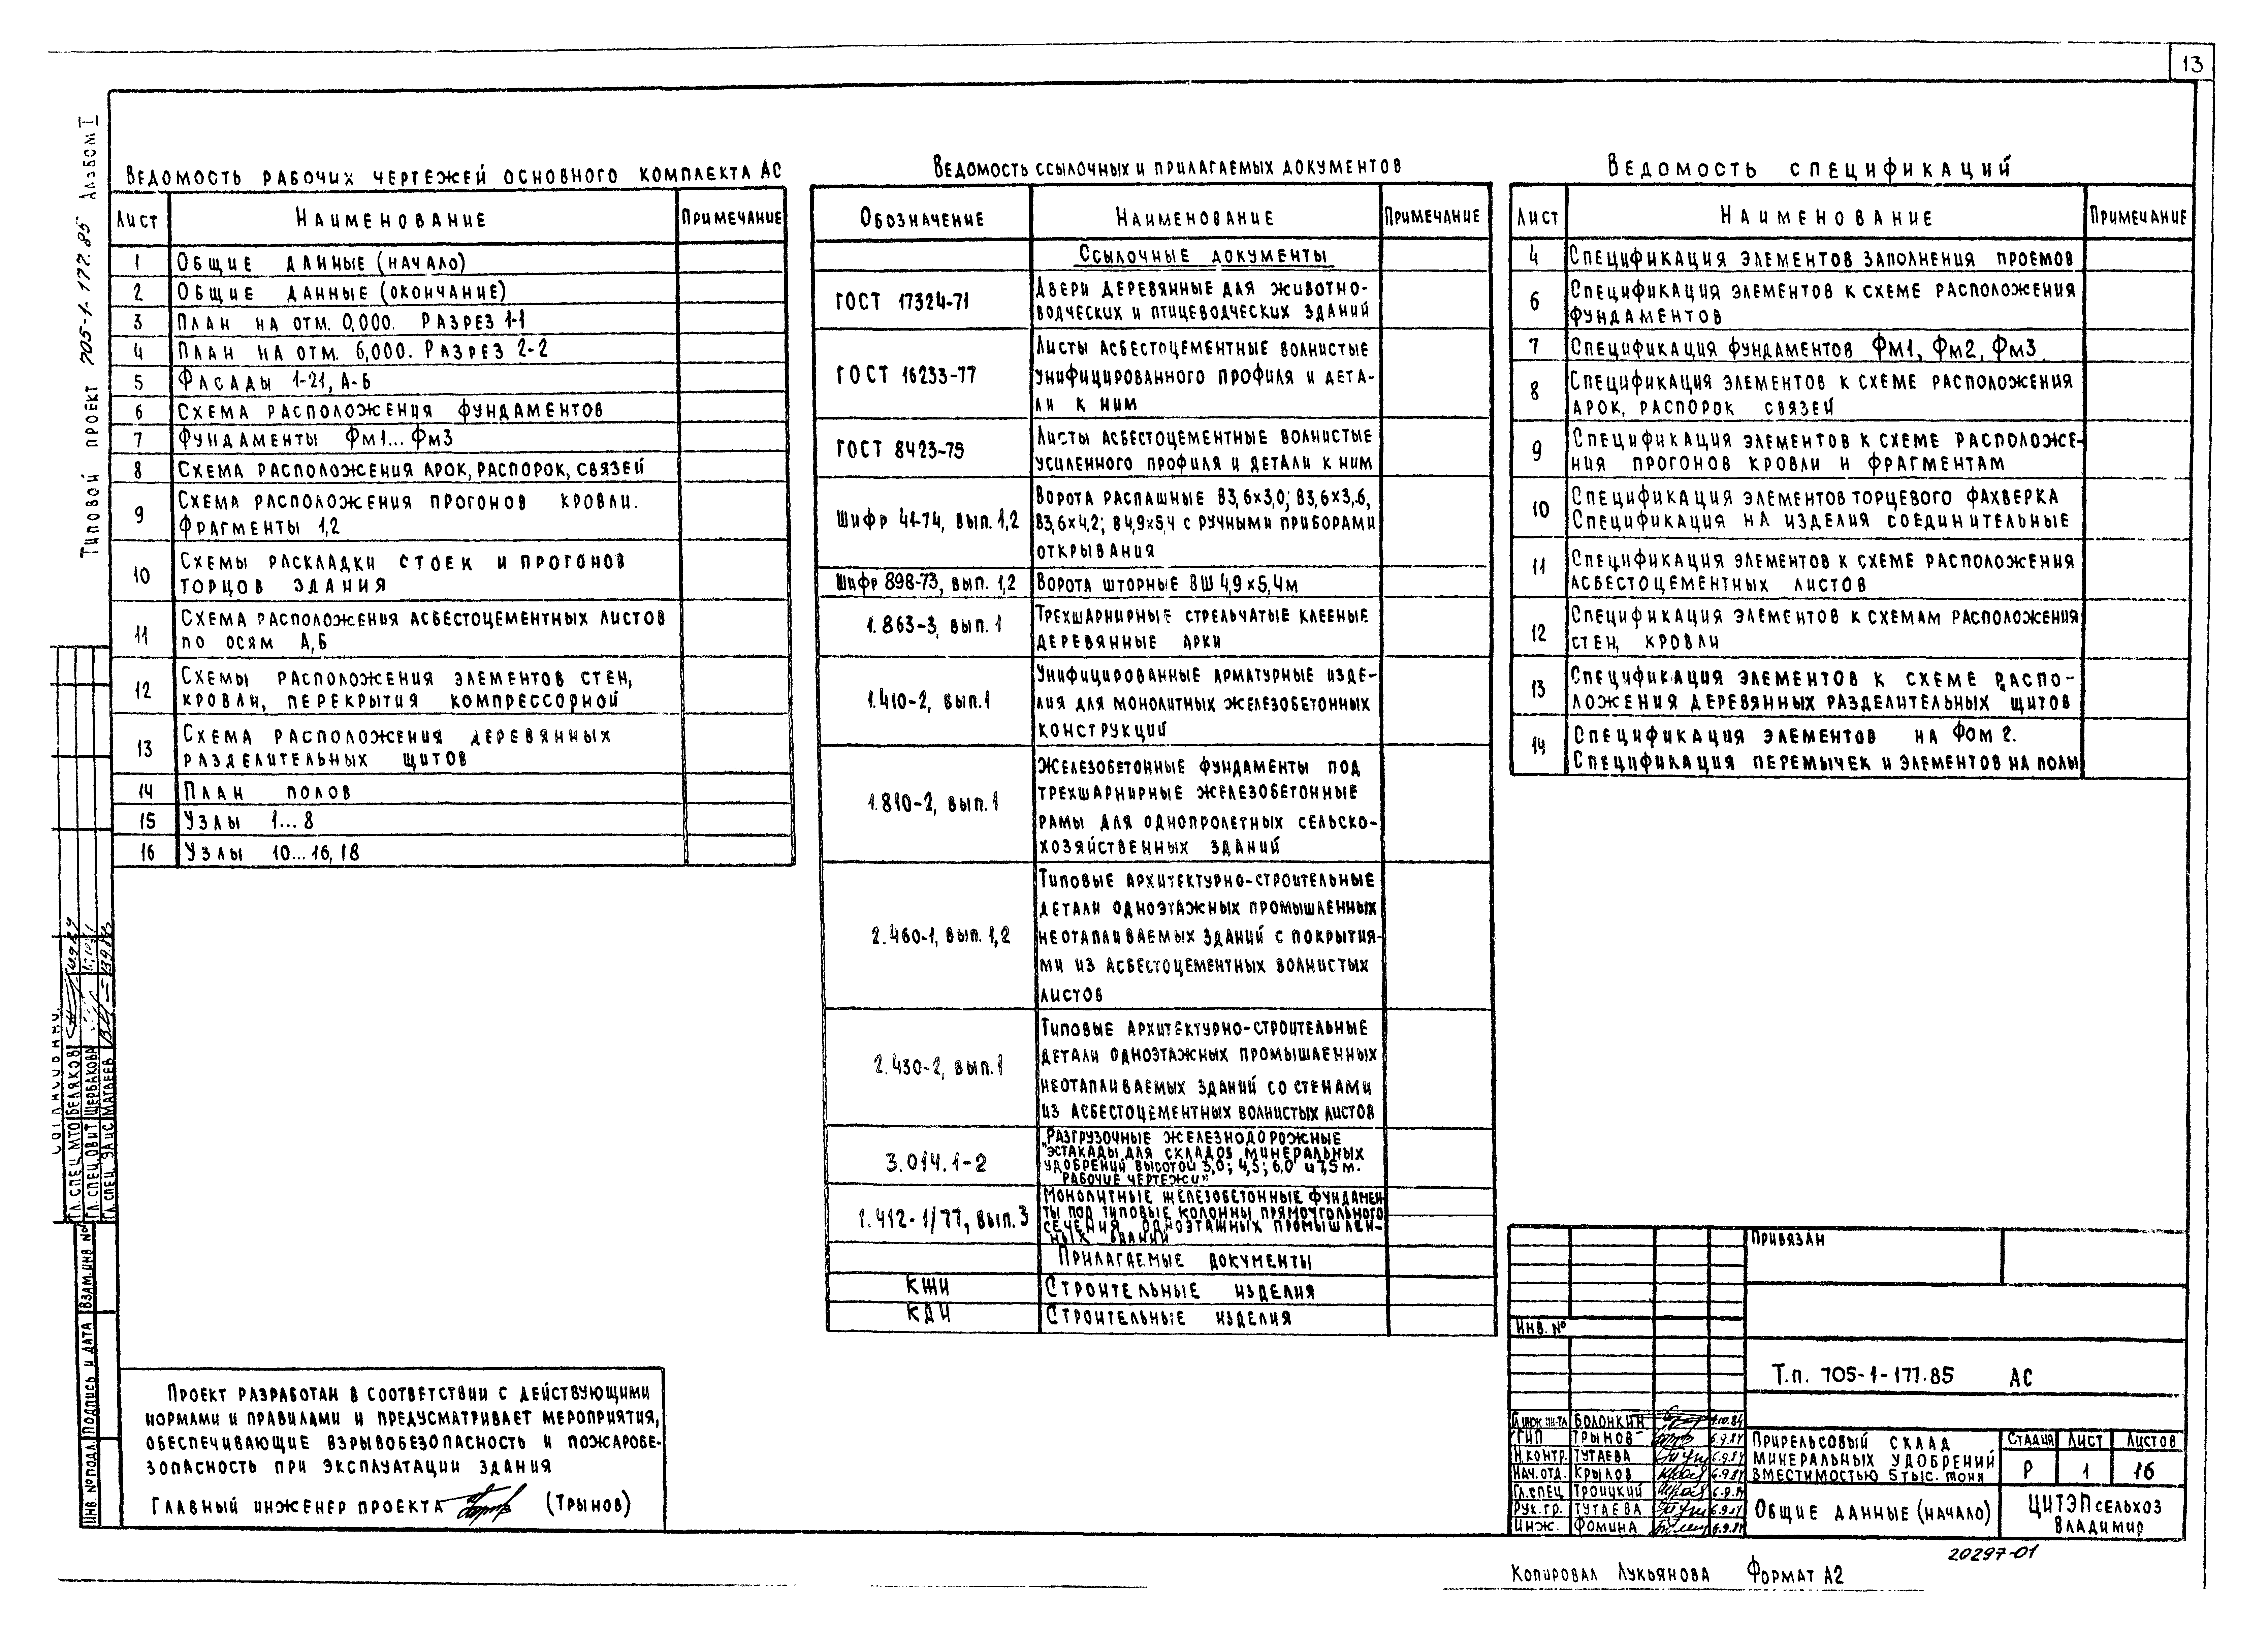 13
Типовой проект 705-1-177.85 Альбом I
Ведомость рабочих чертежей основного комплекта АС
Лист Наименование Примечание
1 Общие данные (начало)
2 Общие данные (окончание)
3 План на отм. 0,000. Разрез 1-1
4 План на отм. 6,000. Разрез 2-2
5 Фасады 1-21, А-Б
6 Схема расположения фундаментов
7 Фундаменты Фм1...Фм3
8 Схема расположения арок, распорок, связей
9 Схема расположения прогонов кровли.
Фрагменты 1,2
10 Схемы раскладки стоек и прогонов
торцов здания
11 Схема расположения асбестоцементных листов
по осям А,Б
12 Схемы расположения элементов стен,
кровли, перекрытия компрессорной
13 Схема расположения деревянных
разделительных щитов
14 План полов
15 Узлы 1...8
16 Узлы 10...16, 18
Ведомость ссылочных и прилагаемых документов
Обозначение Наименование Примечание
Ссылочные документы
ГОСТ 17324-71 Двери деревянные для животно-
водческих и птицеводческих зданий
ГОСТ 16233-77 Листы асбестоцементные волнистые
унифицированного профиля и дета-
ли к ним
ГОСТ 8423-75 Листы асбестоцементные волнистые
усиленного профиля и детали к ним
Шифр 41-74, вып. 1,2 Ворота распашные В3,6×3,0; В3,6×3,6,
В3,6×4,2; В4,9×5,4 с ручными приборами
открывания
Шифр 898-73, вып. 1,2 Ворота шторные ВШ 4,9×5,4м
1.863-3, вып. 1 Трехшарнирные стрельчатые клееные
деревянные арки
1.410-2, вып.1 Унифицированные арматурные изде-
лия для монолитных железобетонных
конструкций
1.810-2, вып.1 Железобетонные фундаменты под
трехшарнирные железобетонные
рамы для однопролетных сельско-
хозяйственных зданий
2.460-1, вып.1,2 Типовые архитектурно-строительные
детали одноэтажных промышленных
неотапливаемых зданий с покрытия-
ми из асбестоцементных волнистых
листов
2.430-2, вып.1 Типовые архитектурно-строительные
детали одноэтажных промышленных
неотапливаемых зданий со стенами
из асбестоцементных волнистых листов
3.014.1-2 „Разгрузочные железнодорожные
эстакады для складов минеральных
удобрений высотой 3,0; 4,5; 6,0 и 7,5 м.
Рабочие чертежи"
1.412-1/77, вып.3 Монолитные железобетонные фундамен-
ты под типовые колонны прямоугольного
сечения одноэтажных промышлен-
ных зданий
Прилагаемые документы
КЖИ Строительные изделия
КДИ Строительные изделия
Ведомость спецификаций
Лист Наименование Примечание
4 Спецификация элементов заполнения проемов
6 Спецификация элементов к схеме расположения
фундаментов
7 Спецификация фундаментов Фм1, Фм2, Фм3
8 Спецификация элементов к схеме расположения
арок, распорок связей
9 Спецификация элементов к схеме расположе-
ния прогонов кровли и фрагментам
10 Спецификация элементов торцевого фахверка
Спецификация на изделия соединительные
11 Спецификация элементов к схеме расположения
асбестоцементных листов
12 Спецификация элементов к схемам расположения
стен, кровли
13 Спецификация элементов к схеме распо-
ложения деревянных разделительных щитов
14 Спецификация элементов на Фом 2.
Спецификация перемычек и элементов на полы
Проект разработан в соответствии с действующими
нормами и правилами и предусматривает мероприятия,
обеспечивающие взрывобезопасность и пожаробе-
зопасность при эксплуатации здания
Главный инженер проекта (Трынов)
Согласовано:
Гл. спец. МТО Беляков
Гл. спец. ОВиТ Щербакова
Гл. спец. ЭАиС Матвеев
Инв. № подл. Подпись и дата Взам. инв. №
Привязан
Инв. №
Т.п. 705-1-177.85 АС
Гл инж ин-та Болонкин
ГИП Трынов 6.9.84
Н.контр. Тутаева 6.9.84
Нач. отд. Крылов 6.9.84
Гл. спец Троицкий 6.9.84
Рук. гр. Тутаева 6.9.84
Инж. Фомина 6.9.84
Прирельсовый склад
минеральных удобрений
вместимостью 5 тыс. тонн
Стадия Лист Листов
Р 1 16
Общие данные (начало)
ЦИТЭПсельхоз
Владимир
20297-01
Копировал Лукьянова Формат А2